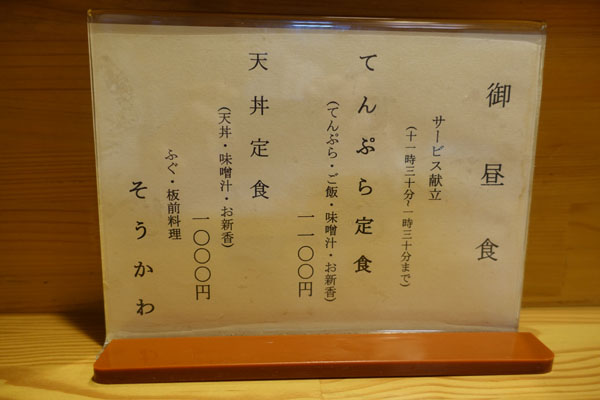 御昼食
サービス献立
(十一時三十分~一時三十分まで)
てんぷら定食
(てんぷら・ご飯・味噌汁・お新香)
一一〇〇円
天丼定食
(天丼・味噌汁・お新香)
一〇〇〇円
ふぐ・板前料理
そうかわ